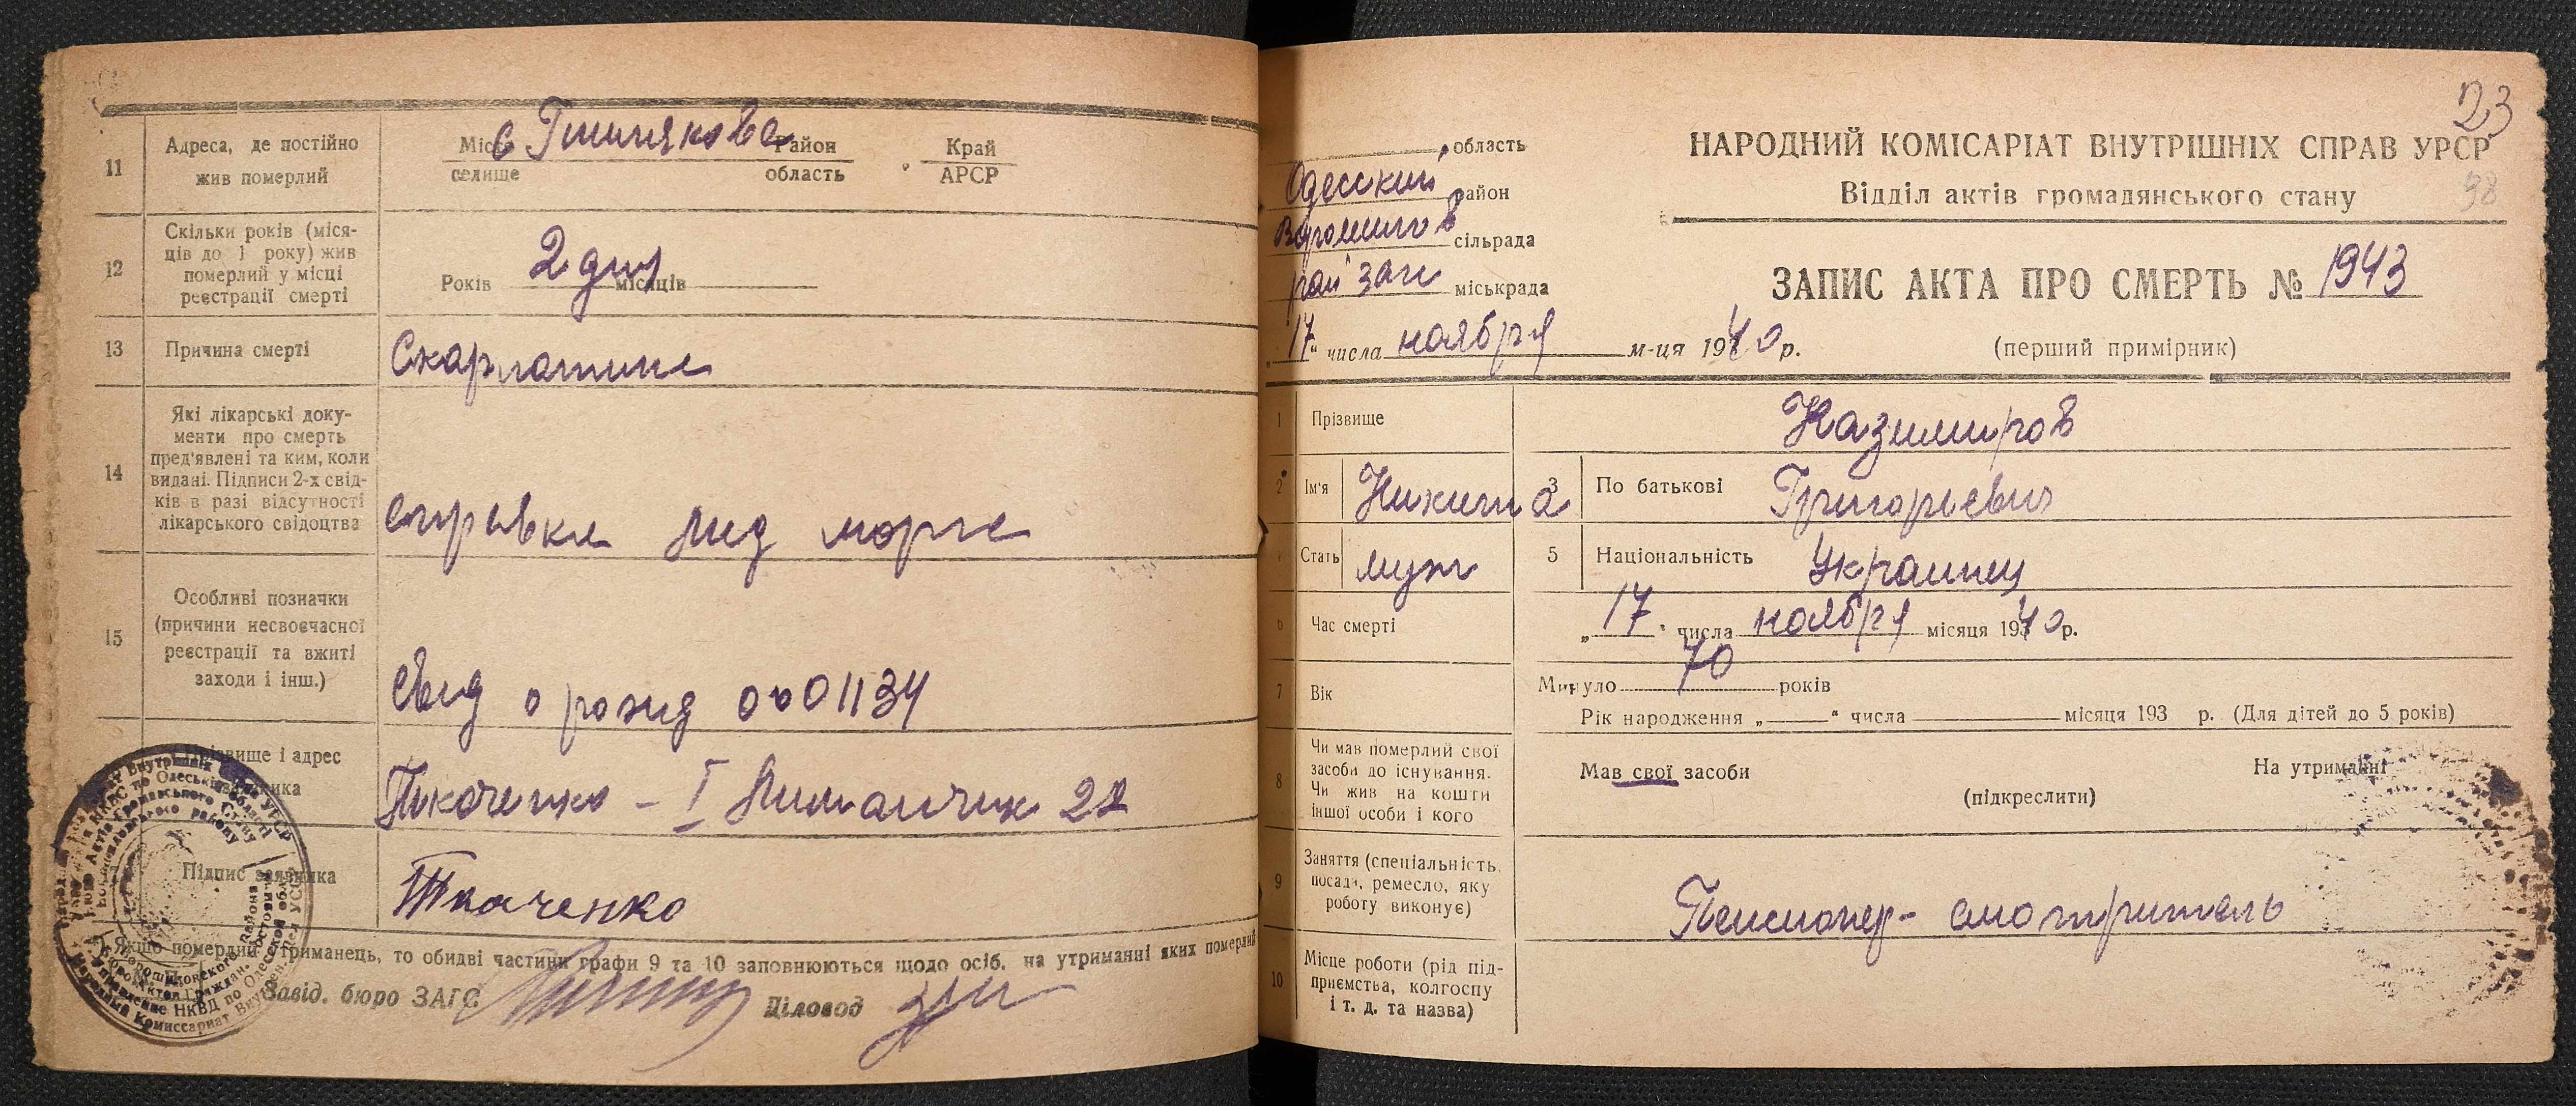 11
Адреса, де постійно
жив померлий
Місто
селище
Район
область
Край
АРСР
12
Скільки років (міся-
ців до 1 року) жив
померлий у місці
реєстрації смерті
Років 2 дня місяців
13
Причина смерті
Скарлатина
14
Які лікарські доку-
менти про смерть
пред'явлені та ким, коли
видані. Підписи 2-х свід-
ків в разі відсутності
лікарського свідоцтва
справка морга
15
Особливі позначки
(причини несвоєчасної
реєстрації та вжиті
заходи і інш.)
Свид о рожд 0001134
Прізвище і адрес
заявника
Ткаченко – I Лиманчик 22
Підпис заявника
Ткаченко
Якщо померлий утриманець, то обидві частини графи 9 та 10 заповнюються щодо осіб, на утриманні яких померлий
Завід. бюро ЗАГС
Діловод
23
38
область
Одесский район
Ворошилов сільрада
рай загс міськрада
„17“ числа ноября м-ця 1940 р.
НАРОДНИЙ КОМІСАРІАТ ВНУТРІШНІХ СПРАВ УРСР
Відділ актів громадянського стану
ЗАПИС АКТА ПРО СМЕРТЬ № 1943
(перший примірник)
1 Прізвище Казимиров
2 Ім'я Никита 3 По батькові Григорьевич
Стать муж 5 Національність Украинец
6 Час смерті „17“ числа ноября місяця 1940 р.
7 Вік
Минуло 70 років
Рік народження „ “ числа місяця 193 р. (Для дітей до 5 років)
8
Чи мав померлий свої
засоби до існування.
Чи жив на кошти
іншої особи і кого
Мав свої засоби На утриманні
(підкреслити)
9
Заняття (спеціальність,
посада, ремесло, яку
роботу виконує)
Пенсионер - смотритель
10
Місце роботи (рід під-
приємства, колгоспу
і т. д. та назва)